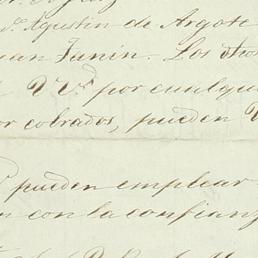 Sr. Agustin de Argote
Juan Junin. Los otros
VVs. por cualqu
or cobrados, pueden V
pueden emplear
n con la confianz